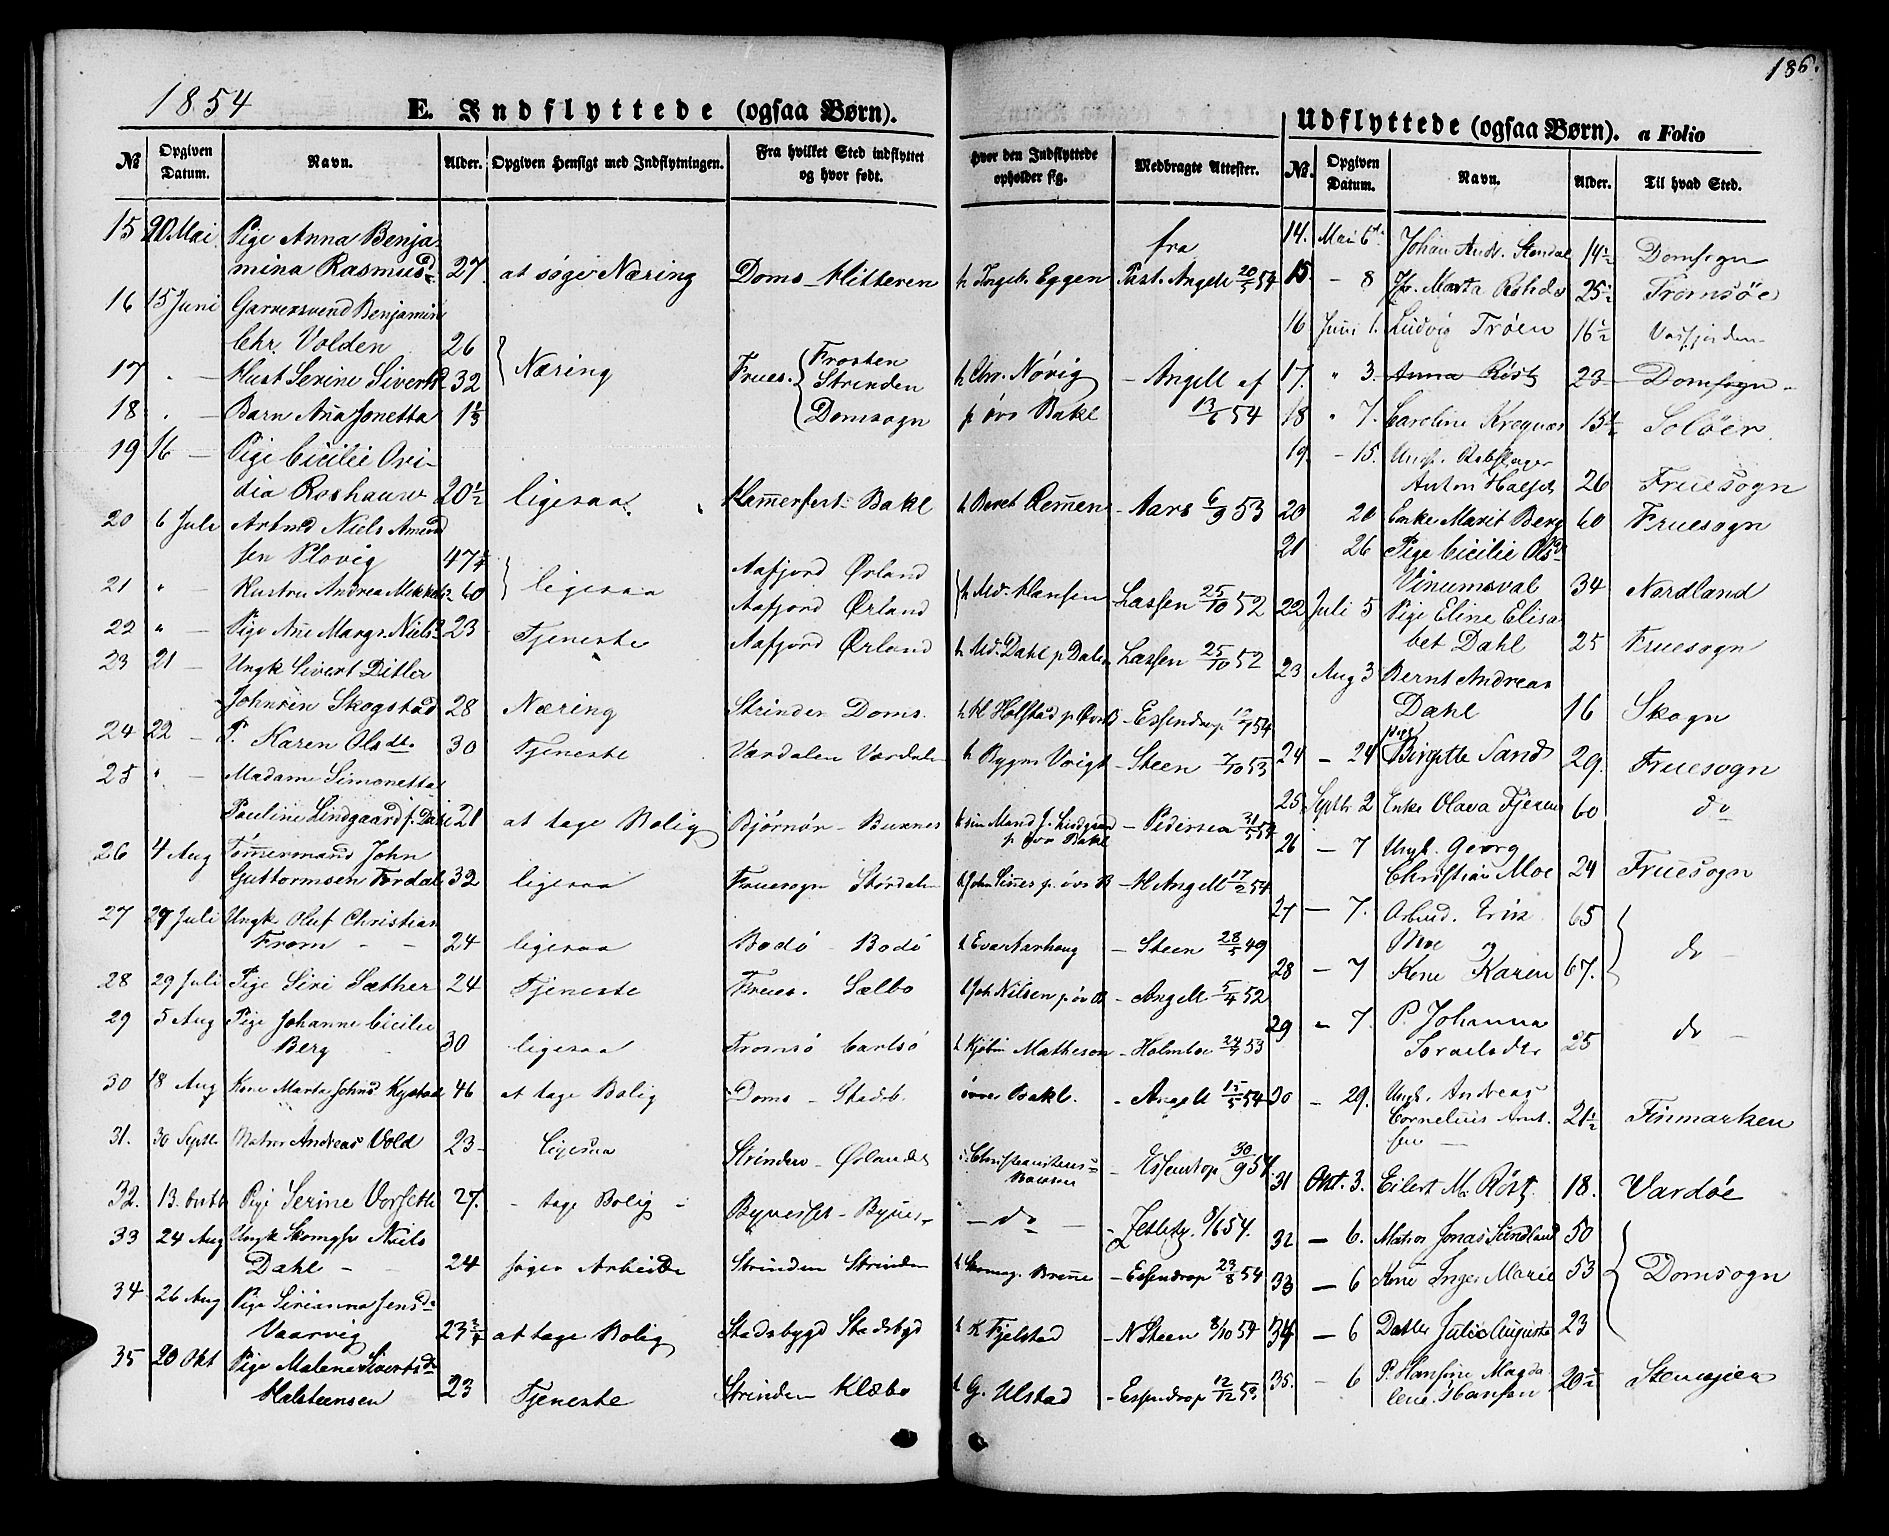 186.
1854
E. Indflyttede (ogsaa Børn).
No
Opgiven Datum.
Navn.
Alder.
Opgiven Hensigt med Indflytningen.
Fra hvilket Sted indflyttet og hvor født.
Hvor den Indflyttede opholder sig.
Medbragte Attester.
15 20 Mai Pige Anna Benja-
mina Rasmusd 27 at søge Næring Doms Hitteren h Ingeb. Eggen fra Past. Angell 20/5 54
16 15 Juni Garversvend Benjamin
Chr. Volden 26 Næring Frues. Frosten
17 " — Hust Serine Sivertsd 32 Strinden h Chr. Nøvig — Angell af
18 " — Barn Ana Jonetta 1 1/3 Domsogn p øvs Bakl 13/6 54
19 16 — Pige Cicilie Ovi-
dia Roshauw 20 1/2 ligesaa Hamerfest Bakl h Beret Remen — Aars 6/9 53
20 6 Juli Arbmd Niels Amund
sen Plovig 47 ligesaa Aafjord Ørland
21 " — Hustru Andrea Mikkels 60 Aafjord Ørland h Md. Hansen Lassen 25/10 52
22 " — Pige Ane Margr. Nielsd 23 Tjeneste Aafjord Ørland h Md. Dahl p Dalen Lassen 25/10 52
23 21 — Ungk Sivert Ditler
Johnsen Skogstad 28 Næring Strinden Doms. — Essendrop 54
24 22 — P. Karen Olsdt. 30 Tjeneste Værdalen Værdalen h Bygm Voigt — Steen 7/10 53
25 " — Madame Simonetta
Pauline Lindgaard f. 21 at tage Bolig Bjørnør — h sin Mand J. Lindgaard p øvr Bakl — Pedersen 31/5 54
26 4 Aug Tømmermand John
Guttormsen Fordal 32 ligesaa Fruesogn Stördalen — H Angell 17/2 54
27 29 Juli Ungk. Oluf Christian
From — — 24 ligesaa Bodö — Bodö — Steen 28/5 49
28 29 Juli Pige Siri Sæther 24 Tjeneste Frues. Sælbo h Joh Nilsen p øv B — Angell 5/4 52
29 5 Aug Pige Johanne Cicilie
Berg 30 ligesaa Tromsö Carlsö h Kjøbm Matheson — Holmboe 53
30 18 Aug Kone Marta Johnsd Kystad 46 at tage Bolig Doms — Stadsb. övre Bakl. — Angell 15/5 54
31. 30 Septb. Matros Andreas Vold 23 — ligesaa Strinden — Ørlandet — Essendrop 30/9 54
32. 13. Octb Pige Serine Vorseth 27. — tage Bolig — Byneset — Bynes — do — 8/6 54.
33 24 Aug Ungk Skomgsv Niels
Dahl — 24 søger Arbeide Strinden Strinden — Essendrop 23/8 54
34 26 Aug Pige Sirianna Jensd
Vaarvig 23 3/4 at tage Bolig Stadsbygd Stadsbygd h K Fjelstad — N Steen 8/10 54
35 20 Okt Pige Malene Sivertsd
Halsteensen 23 Tjeneste Strinden Klæbo h G. Ulstad — Essendrop 12/12 53
Udflyttede (ogsaa Børn). a Folio
No.
Opgiven Datum.
Navn.
Alder.
Til hvad Sted.
14. Mai 6. Johan Andr. Stendal 14 1/2 Domsogn
15 — 8 Marta Rohde 25 1/2 Tromsöe
16 Juni 1. Ludvig Trøen 16 1/2
17. " 3. Anna Röst 23 Domsogn
18 " 7. Caroline Kregnæs 15 1/2 Solöer
19. — 15. Ungk. Rebslager
Anton Halset 26 Fruesogn
20 20 Enke Marit Berg 60 Fruesogn
21 26 Pige Cicilie Olsd
Vinumsval 34 Nordland
22 Juli 5 Pige Eline Elisa
bet Dahl 25 Fruesogn
23 Aug 3 Bernt Andreas
Dahl 16 Skogn
24 — 24 Pige Birgitte Sand 29. Fruesogn
25 Septb. 2 Enke Olava 60 do
26 — 7 Ungk. Georg
Christian Moe 24 Fruesogn
27 — 7. Arbmd. Erik 65
Moe do —
28 — 7 Kone Karen 67.
29 — 7. P. Johanna
Israelsdtr 25 do —
30 — 29. Ungk. Andreas
Cornelius Arnt-
sen — 21 1/2 Finmarken
31 Okt. 3. Eilert M. Röst. 18. Vardöe
32 — 6. Matros Jonas Sundland 50
33 — 6 Kone Inger Marie 53 Domsogn
34 — 6 Datter Julie Auguste 23
35. — 6 P. Hansine Magda
lene Hansen 20 1/2 Steenkjær